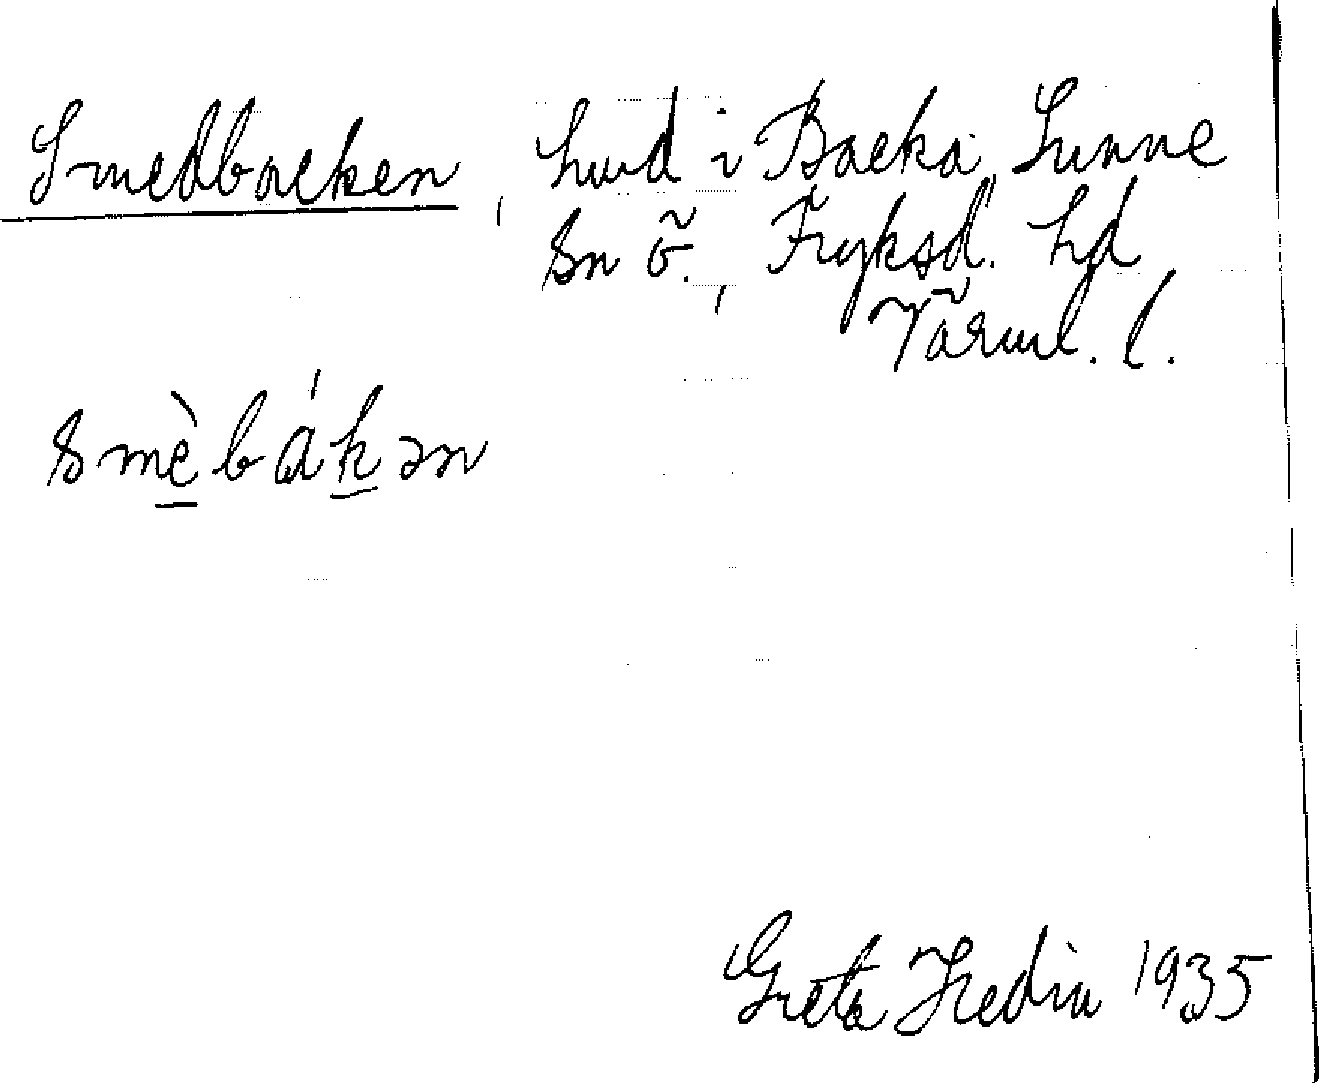 Smedbacken, hmd i Backa, Sunne
Sn ö., Fryksd. hd
Värml. l.
smèbákən
Greta Hedin 1935